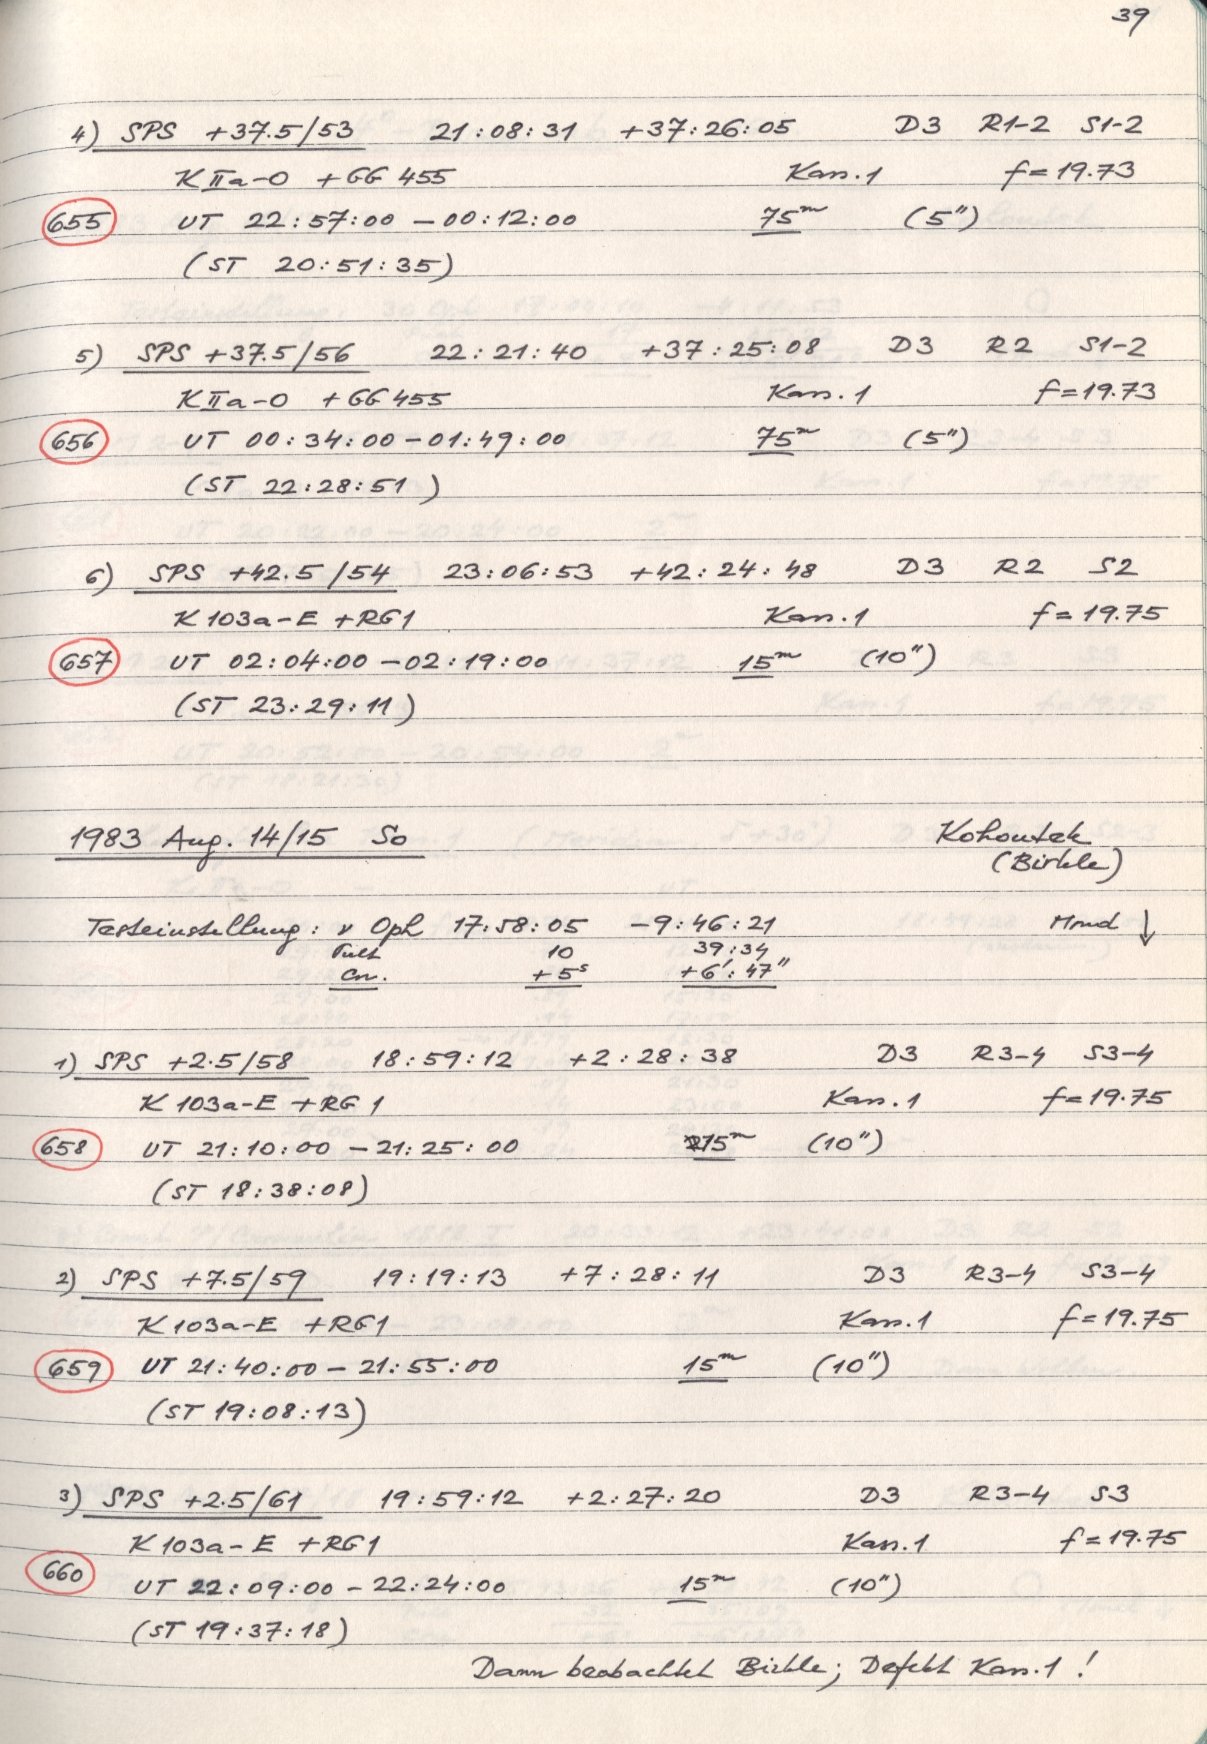 39
4) SPS +37.5/53 21:08:31 +37:26:05 D3 R1-2 S1-2
K IIa-O + GG 455 Kass.1 f=19.73
655 UT 22:57:00 - 00:12:00 75m (5")
(ST 20:51:35)
5) SPS +37.5/56 22:21:40 +37:25:08 D3 R2 S1-2
K IIa-O + GG 455 Kass.1 f=19.73
656 UT 00:34:00 - 01:49:00 75m (5")
(ST 22:28:51)
6) SPS +42.5/54 23:06:53 +42:24:48 D3 R2 S2
K 103a-E + RG1 Kass.1 f=19.75
657 UT 02:04:00 - 02:19:00 15m (10")
(ST 23:29:11)
1983 Aug. 14/15 So Kohoutek
(Birkle)
Testeinstellung: ν Oph 17:58:05 -9:46:21 Mond ↓
Pult 10 39:34
Corr. +5s +6':47"
1) SPS +2.5/58 18:59:12 +2:28:38 D3 R3-4 S3-4
K 103a-E + RG1 Kass.1 f=19.75
658 UT 21:10:00 - 21:25:00 15m (10")
(ST 18:38:08)
2) SPS +7.5/59 19:19:13 +7:28:11 D3 R3-4 S3-4
K 103a-E + RG1 Kass.1 f=19.75
659 UT 21:40:00 - 21:55:00 15m (10")
(ST 19:08:13)
3) SPS +2.5/61 19:59:12 +2:27:20 D3 R3-4 S3
K 103a-E + RG1 Kass.1 f=19.75
660 UT 22:09:00 - 22:24:00 15m (10")
(ST 19:37:18)
Dann beobachtet Birkle; Defekt Kass.1!